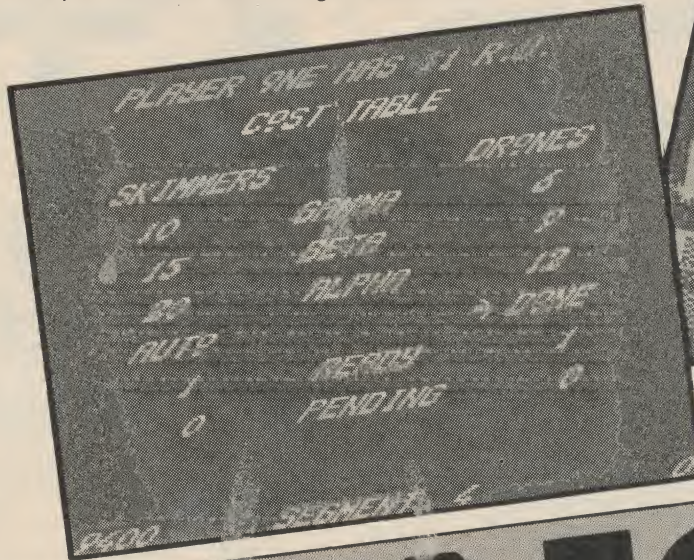 PLAYER ONE HAS 51 R.U.
COST TABLE
SKIMMERS DRONES
10 GAMMA 6
15 BETA 9
20 ALPHA 12
AUTO → DONE
1 READY 1
0 PENDING 0
0400 SEGMENT 4